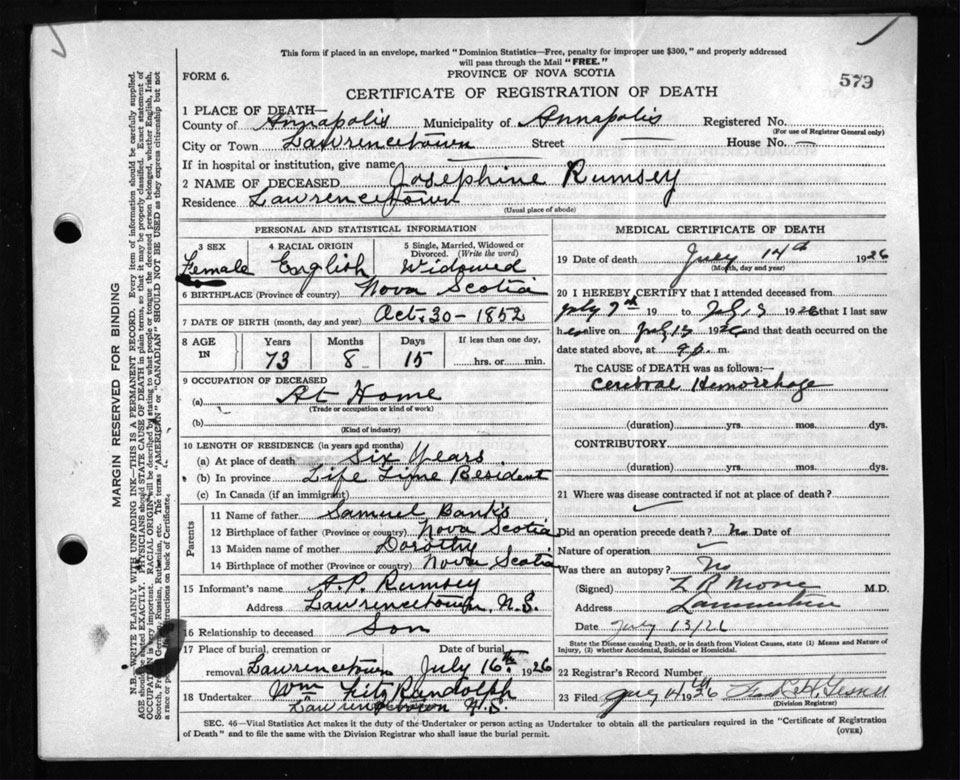 This form if placed in an envelope, marked "Dominion Statistics—Free, penalty for improper use $300," and properly addressed
will pass through the Mail "FREE."
FORM 6.
PROVINCE OF NOVA SCOTIA
579
CERTIFICATE OF REGISTRATION OF DEATH
1 PLACE OF DEATH—
County of Annapolis Municipality of Annapolis Registered No.
(For use of Registrar General only)
City or Town Lawrencetown Street House No. —
If in hospital or institution, give name
2 NAME OF DECEASED Josephine Rumsey
Residence Lawrencetown
(Usual place of abode)
PERSONAL AND STATISTICAL INFORMATION
3 SEX 4 RACIAL ORIGIN 5 Single, Married, Widowed or
Divorced. (Write the word)
Female English Widowed
6 BIRTHPLACE (Province or country) Nova Scotia
7 DATE OF BIRTH (month, day and year) Oct-30-1852
8 AGE IN Years Months Days If less than one day,
73 8 15 hrs. or min.
9 OCCUPATION OF DECEASED
(a) At Home
(Trade or occupation or kind of work)
(b)
(Kind of industry)
10 LENGTH OF RESIDENCE (in years and months)
(a) At place of death Six Years
(b) In province Life Time Resident
(c) In Canada (if an immigrant)
Parents
11 Name of father Samuel Banks
12 Birthplace of father (Province or country) Nova Scotia
13 Maiden name of mother Dorothy
14 Birthplace of mother (Province or country) Nova Scotia
15 Informant's name A.P. Rumsey
Address Lawrencetown, N.S.
16 Relationship to deceased Son
17 Place of burial, cremation or Date of burial
removal Lawrencetown July 16th 1926
18 Undertaker Wm FitzRandolph
Lawrencetown N.S.
MEDICAL CERTIFICATE OF DEATH
19 Date of death July 14th 1926
(Month, day and year)
20 I HEREBY CERTIFY that I attended deceased from
July 7th 19 to July 13 1926 that I last saw
her alive on July 13 1926 and that death occurred on
date stated above, at 9 p. m.
The CAUSE of DEATH was as follows:—
Cerebral Hemorrhage
(duration) yrs. mos. dys.
CONTRIBUTORY
(duration) yrs. mos. dys.
21 Where was disease contracted if not at place of death?
Did an operation precede death? No Date of
Nature of operation
Was there an autopsy? No
(Signed) M.D.
Address
Date July 13/26
State the Disease causing Death, or in death from Violent Causes, state (1) Means and Nature of
Injury, (2) whether Accidental, Suicidal or Homicidal.)
22 Registrar's Record Number
23 Filed 1926
(Division Registrar)
SEC. 46—Vital Statistics Act makes it the duty of the Undertaker or person acting as Undertaker to obtain all the particulars required in the "Certificate of Registration
of Death" and to file the same with the Division Registrar who shall issue the burial permit.
(OVER)
MARGIN RESERVED FOR BINDING
N.B.—WRITE PLAINLY WITH UNFADING INK—THIS IS A PERMANENT RECORD. Every item of information should be carefully supplied.
AGE should be stated EXACTLY. PHYSICIANS should STATE CAUSE OF DEATH in plain terms, so that it may be properly classified. Exact statement of
OCCUPATION is very important. RACIAL ORIGIN will be described by stating to what people or tongue the deceased person belonged, whether English, Irish,
Scotch, French, German, Russian, Ruthenian, etc. The terms "AMERICAN" or "CANADIAN" SHOULD NOT BE USED as they express citizenship but not
a race or people. instructions on back of Certificate.